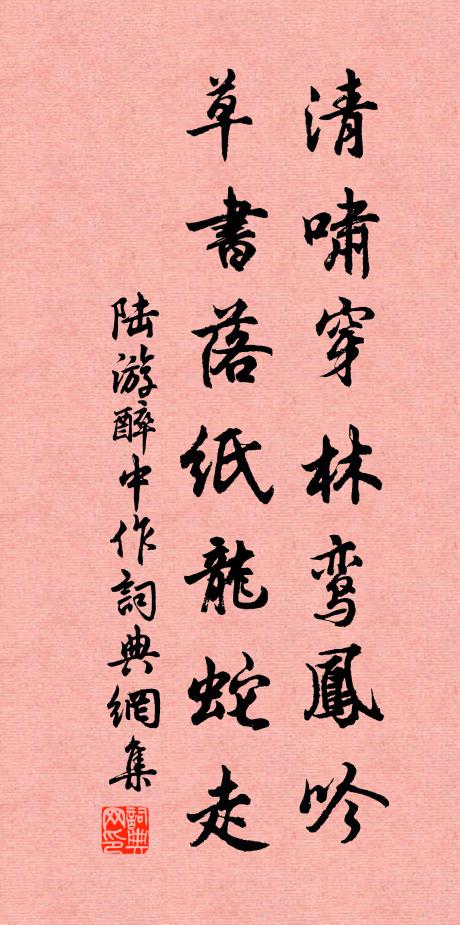 清啸穿林鸾鳳吟
草書落紙龍蛇走
陆游醉中作詞典網集
詞典网印